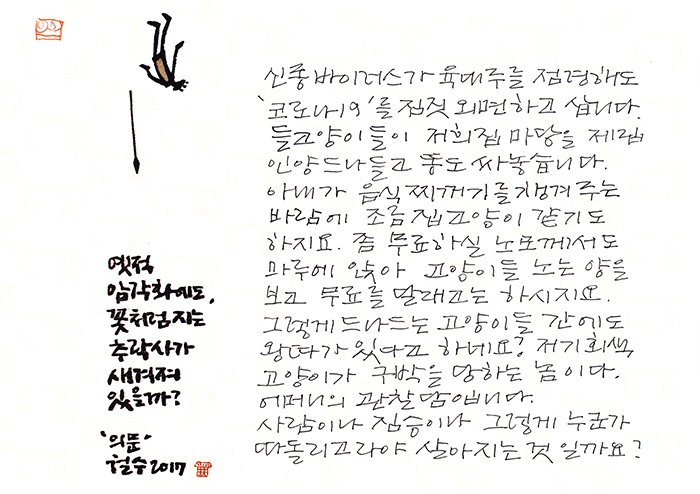 옛적
암각화에도,
꽃처럼 지는
추락사가
새겨져
있을까?
'의문'
철수 2017
신종 바이러스가 육대주를 점령해도
'코로나19'를 짐짓 외면하고 삽니다.
들고양이들이 저희집 마당을 제집
인양 드나들고 똥도 싸놓습니다.
아내가 음식찌꺼기를 챙겨주는
바람에 조금 집고양이 같기도
하지요. 좀 무료하실 노모께서도
마루에 앉아 고양이들 노는 양을
보고 무료를 달래고는 하시지요.
그렇게 드나드는 고양이들 간에도
왕따가 있다고 하네요? 저기 회색
고양이가 구박을 당하는 놈이다.
어머니의 관찰담입니다.
사람이나 짐승이나 그렇게 누군가
따돌리고라야 살아지는 것 일까요?